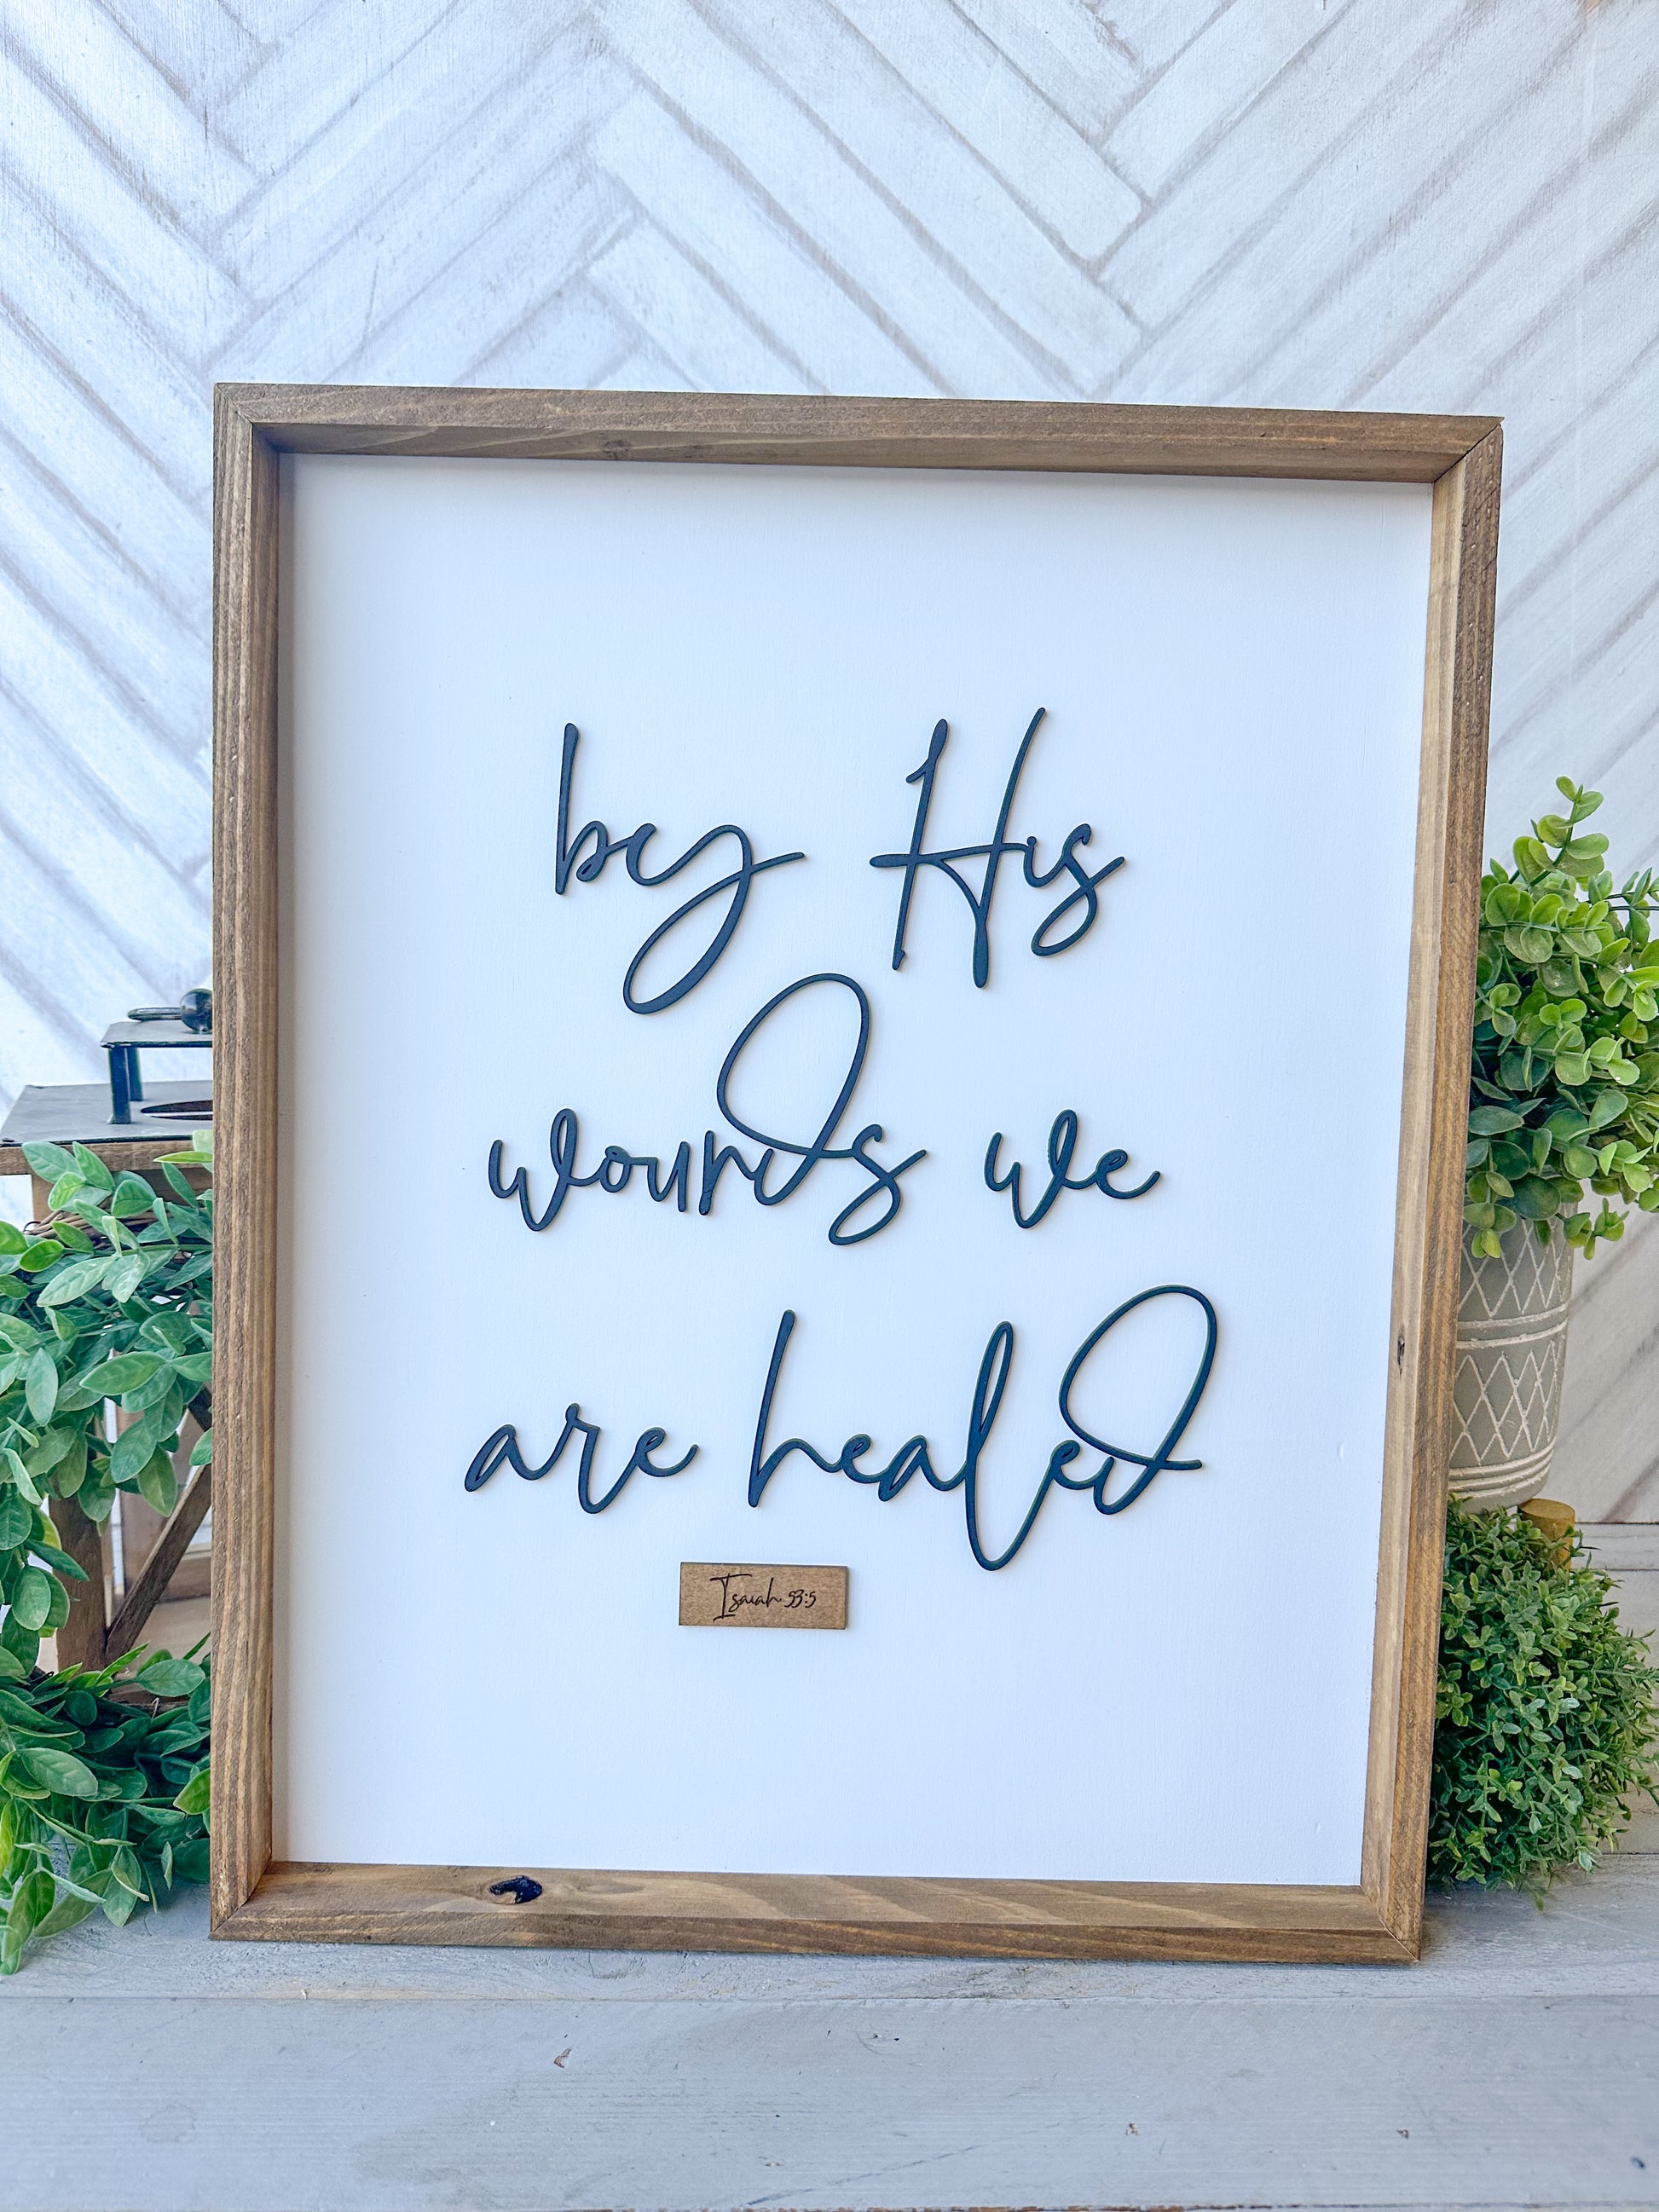 by His
wounds we
are healed
Isaiah 53:5